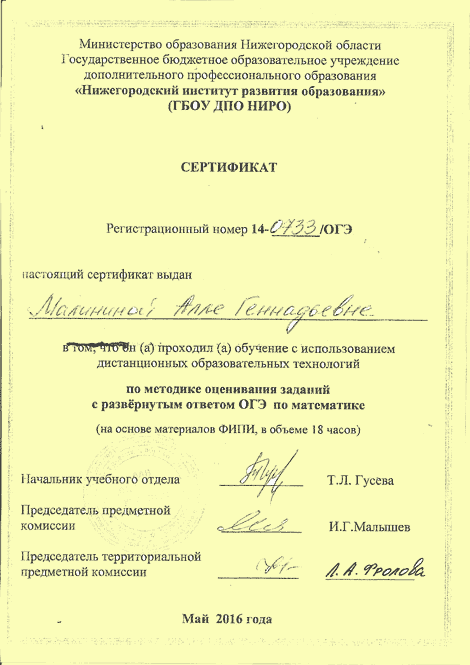 Министерство образования Нижегородской области
Государственное бюджетное образовательное учреждение
дополнительного профессионального образования
«Нижегородский институт развития образования»
(ГБОУ ДПО НИРО)
СЕРТИФИКАТ
Регистрационный номер 14-0733/ОГЭ
настоящий сертификат выдан
Малининой Алле Геннадьевне
в том, что он (а) проходил (а) обучение с использованием
дистанционных образовательных технологий
по методике оценивания заданий
с развёрнутым ответом ОГЭ по математике
(на основе материалов ФИПИ, в объеме 18 часов)
Начальник учебного отдела Т.Л. Гусева
Председатель предметной
комиссии И.Г.Малышев
Председатель территориальной
предметной комиссии Л.А.Фролова
Май 2016 года